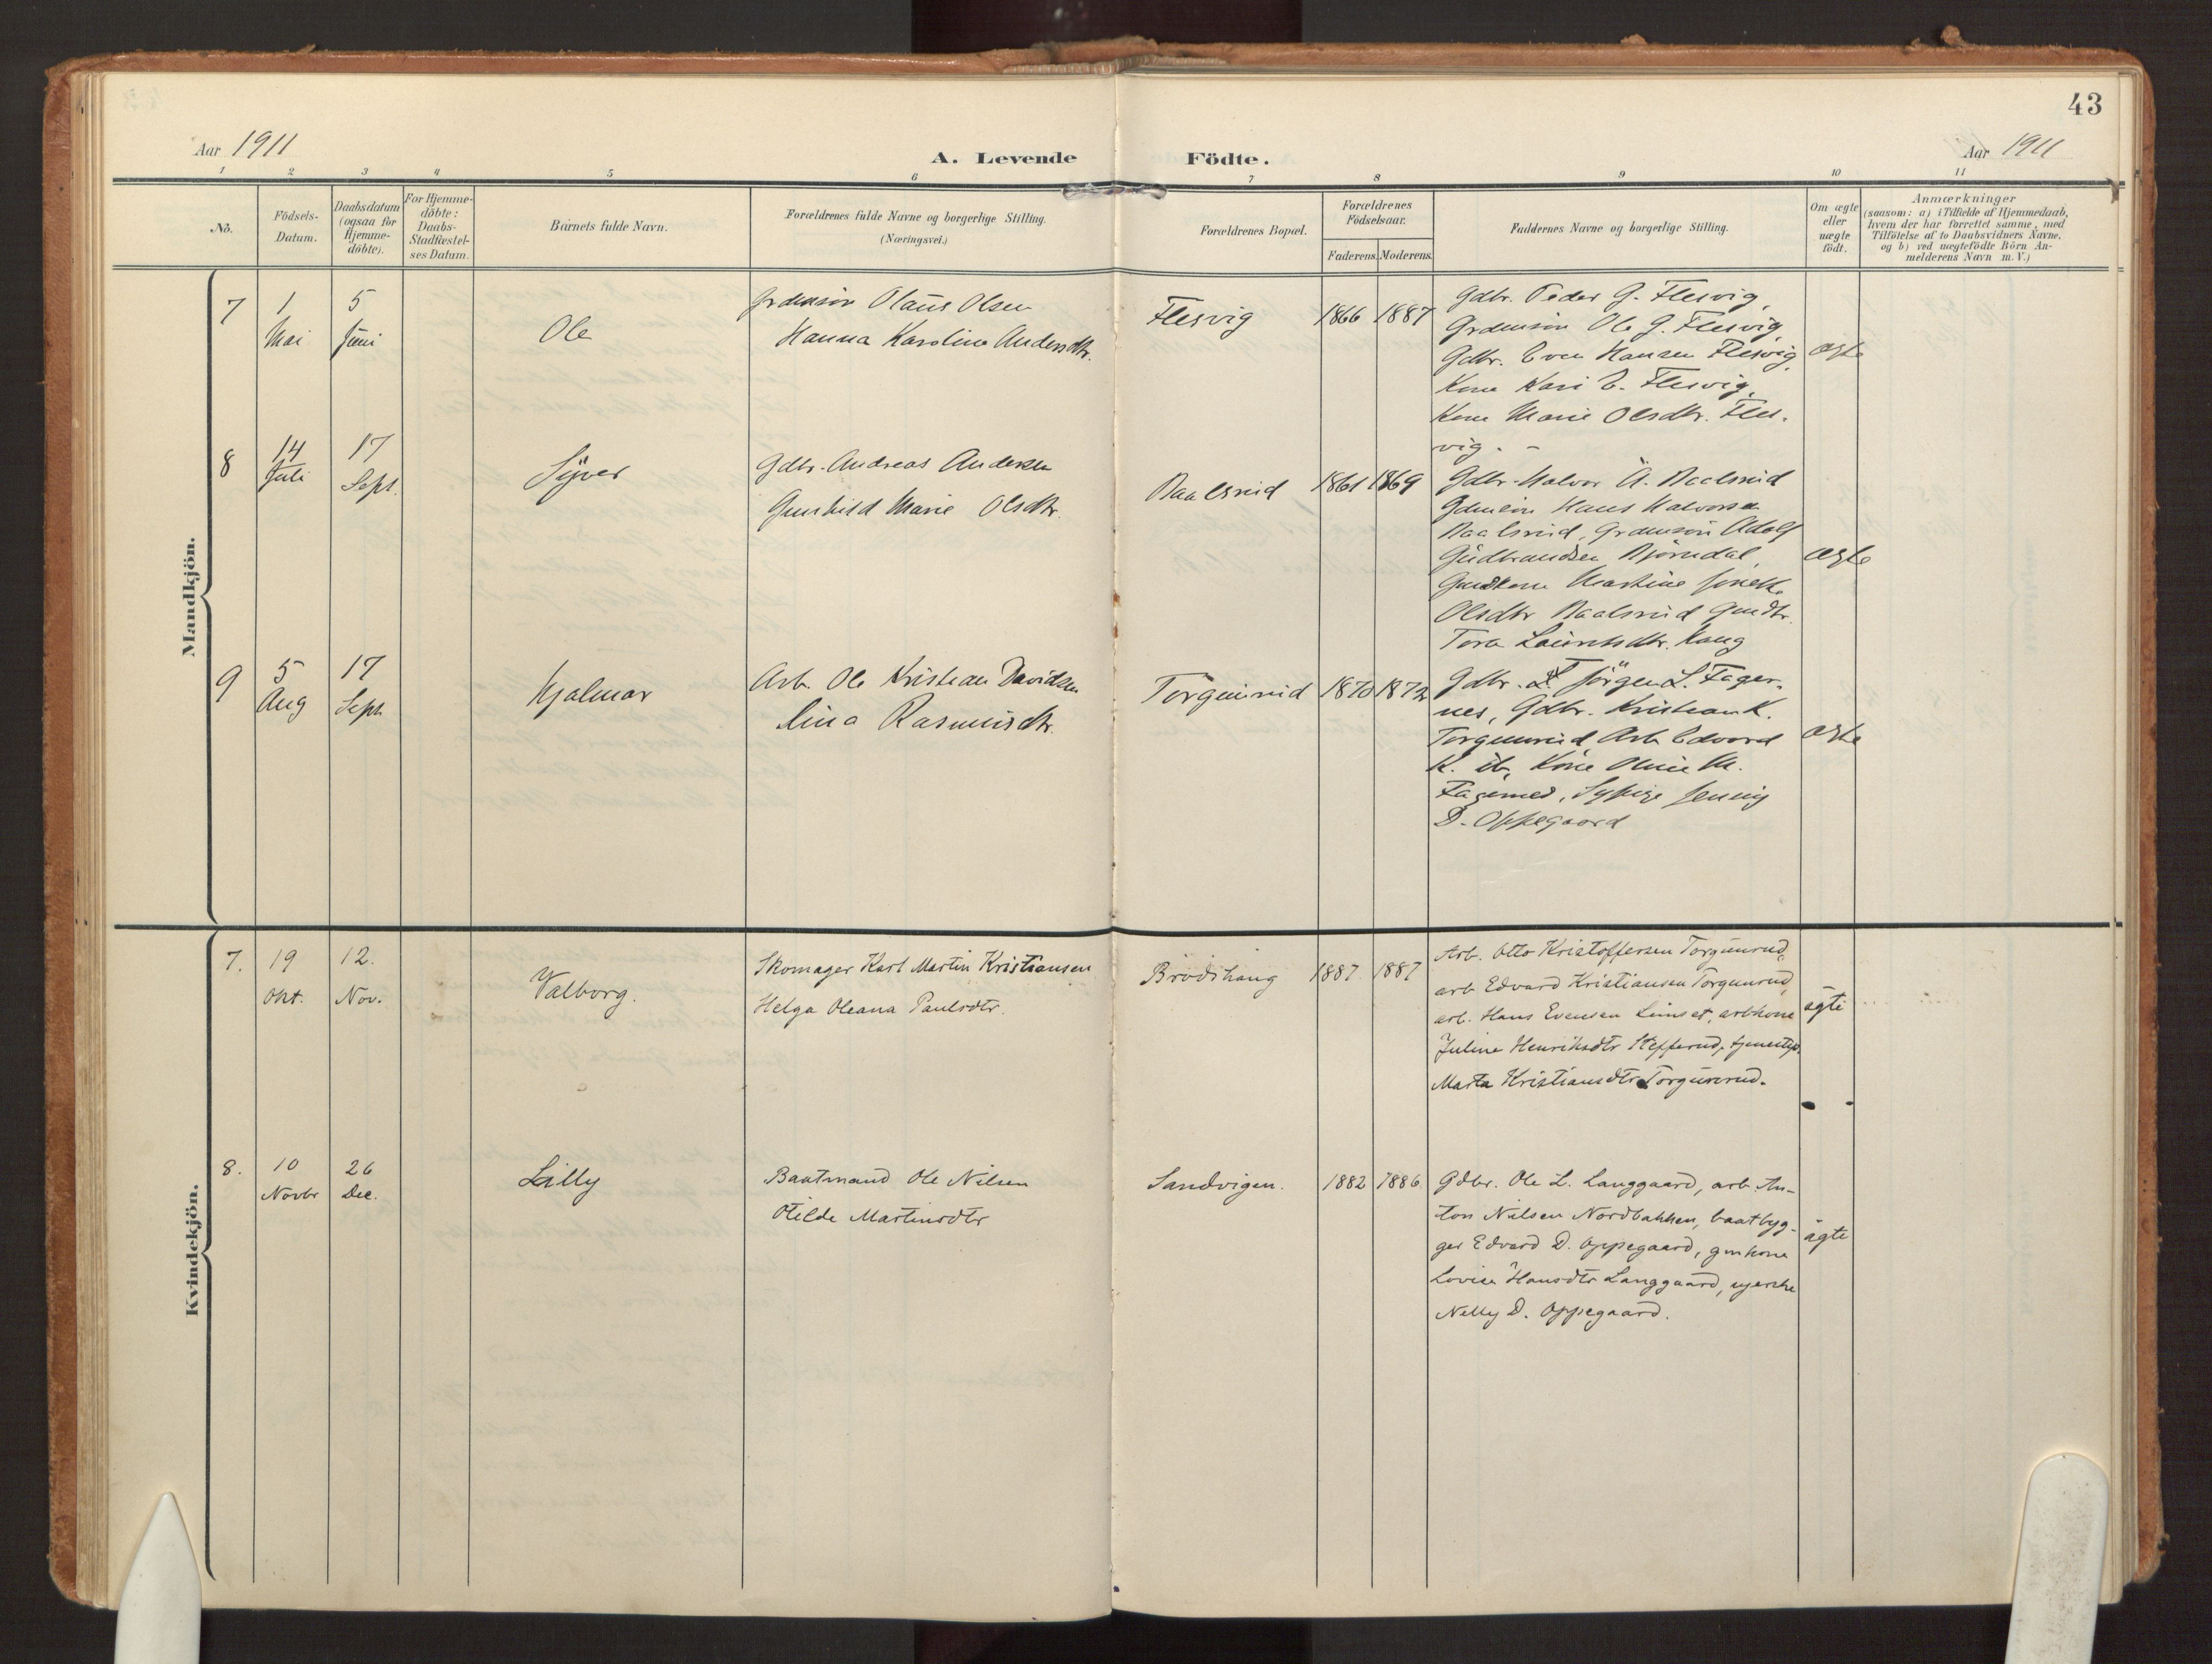 43
Aar 1911
A. Levende Födte.
Aar 1911
1 2 3 4 5 6 7 8 9 10 11
No. Födsels-Datum. Daabsdatum (ogsaa for Hjemme-döbte). For Hjemme-döbte: Daabs-Stadfæstel-ses Datum. Barnets fulde Navn. Forældrenes fulde Navne og borgerlige Stilling. (Næringsvei.) Forældrenes Bopæl. Forældrenes Födselsaar. Faderens. Moderens. Faddernes Navne og borgerlige Stilling. Om ægte eller uægte födt. Anmærkninger (saasom: a) i Tilfælde af Hjemmedaab, hvem der har forrettet samme, med Tilföielse af to Daabsvidners Navne, og b) ved uægtefödte Börn An-melderens Navn m. V.)
Mandkjön.
7 1 Mai 5 Juni Ole
Grdmsön Olaus Olsen
Hanna Karoline Andersdtr.
Flesvig 1866 1887
Gdbr. Peder G. Flesvig,
Grdmsön Ole G. Flesvig,
Gdbr. Even Hansen Flesvig,
Kone Kari E. Flesvig,
Kone Marie Olsdtr. Fles-
vig. -
ægte
8 14 Juli 17 Sept. Syver
Gdbr. Andreas Andersen
Gunhild Marie Olsdtr.
Raalsrud 1861 1869
Gdbr. Halvor A. Raalsrud
Gdmsön Hans Halvorsen
Raalsrud, Grdmsön Adolf
Gudbrandsen Björndal,
Gmdkone Martine
Olsdtr Raalsrud Gmdtr.
Tora Lauritsdtr. Haug
ægte
9 5 Aug 17 Sept Hjalmar
Arb. Ole Kristian Davidsen
Lina Rasmusdtr.
Torgunrud 1870 1872
Gdbr. Jörgen L. Fager-
nes, Gdbr. Kristian K.
Torgunrud, Arb. Edvard
K. ib, Kone Oline M.
Fagernes, Sypige Jenny
D. Oppegaard
ægte
Kvindekjön.
7. 19 Okt. 12. Nov. Valborg.
Skomager Karl Martin Kristiansen
Helga Oleana Paulsdtr.
Brödshaug 1887. 1887
Arb. Otto Kristoffersen Torgunrud,
arb Edvard Kristiansen Torgunrud,
arb. Hans Evensen Linset, arbkone
Juline Henriksdtr Stefferud, tjenestp.
Marta Kristiansdtr Torgunrud.
ägte
8. 10 Novbr 26 Dec. Lilly
Baatmand Ole Nilsen
Otilde Martinsdtr
Sandvigen. 1882 1886
Gdbr. Ole L. Langgaard, arb. An-
ton Nilsen Nordbakken, baatbyg-
ger Edvard D. Oppegaard, gmkone
Lovise Hansdtr Langgaard, syerske
Nelly D. Oppegaard.
ägte